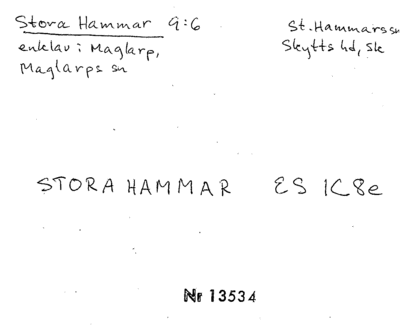 Stora Hammar 9:6
enklav i Maglarp,
Maglarps sn
St. Hammars sn
Skytts hd, Sk
STORA HAMMAR ES 1C8e
Nr 13534